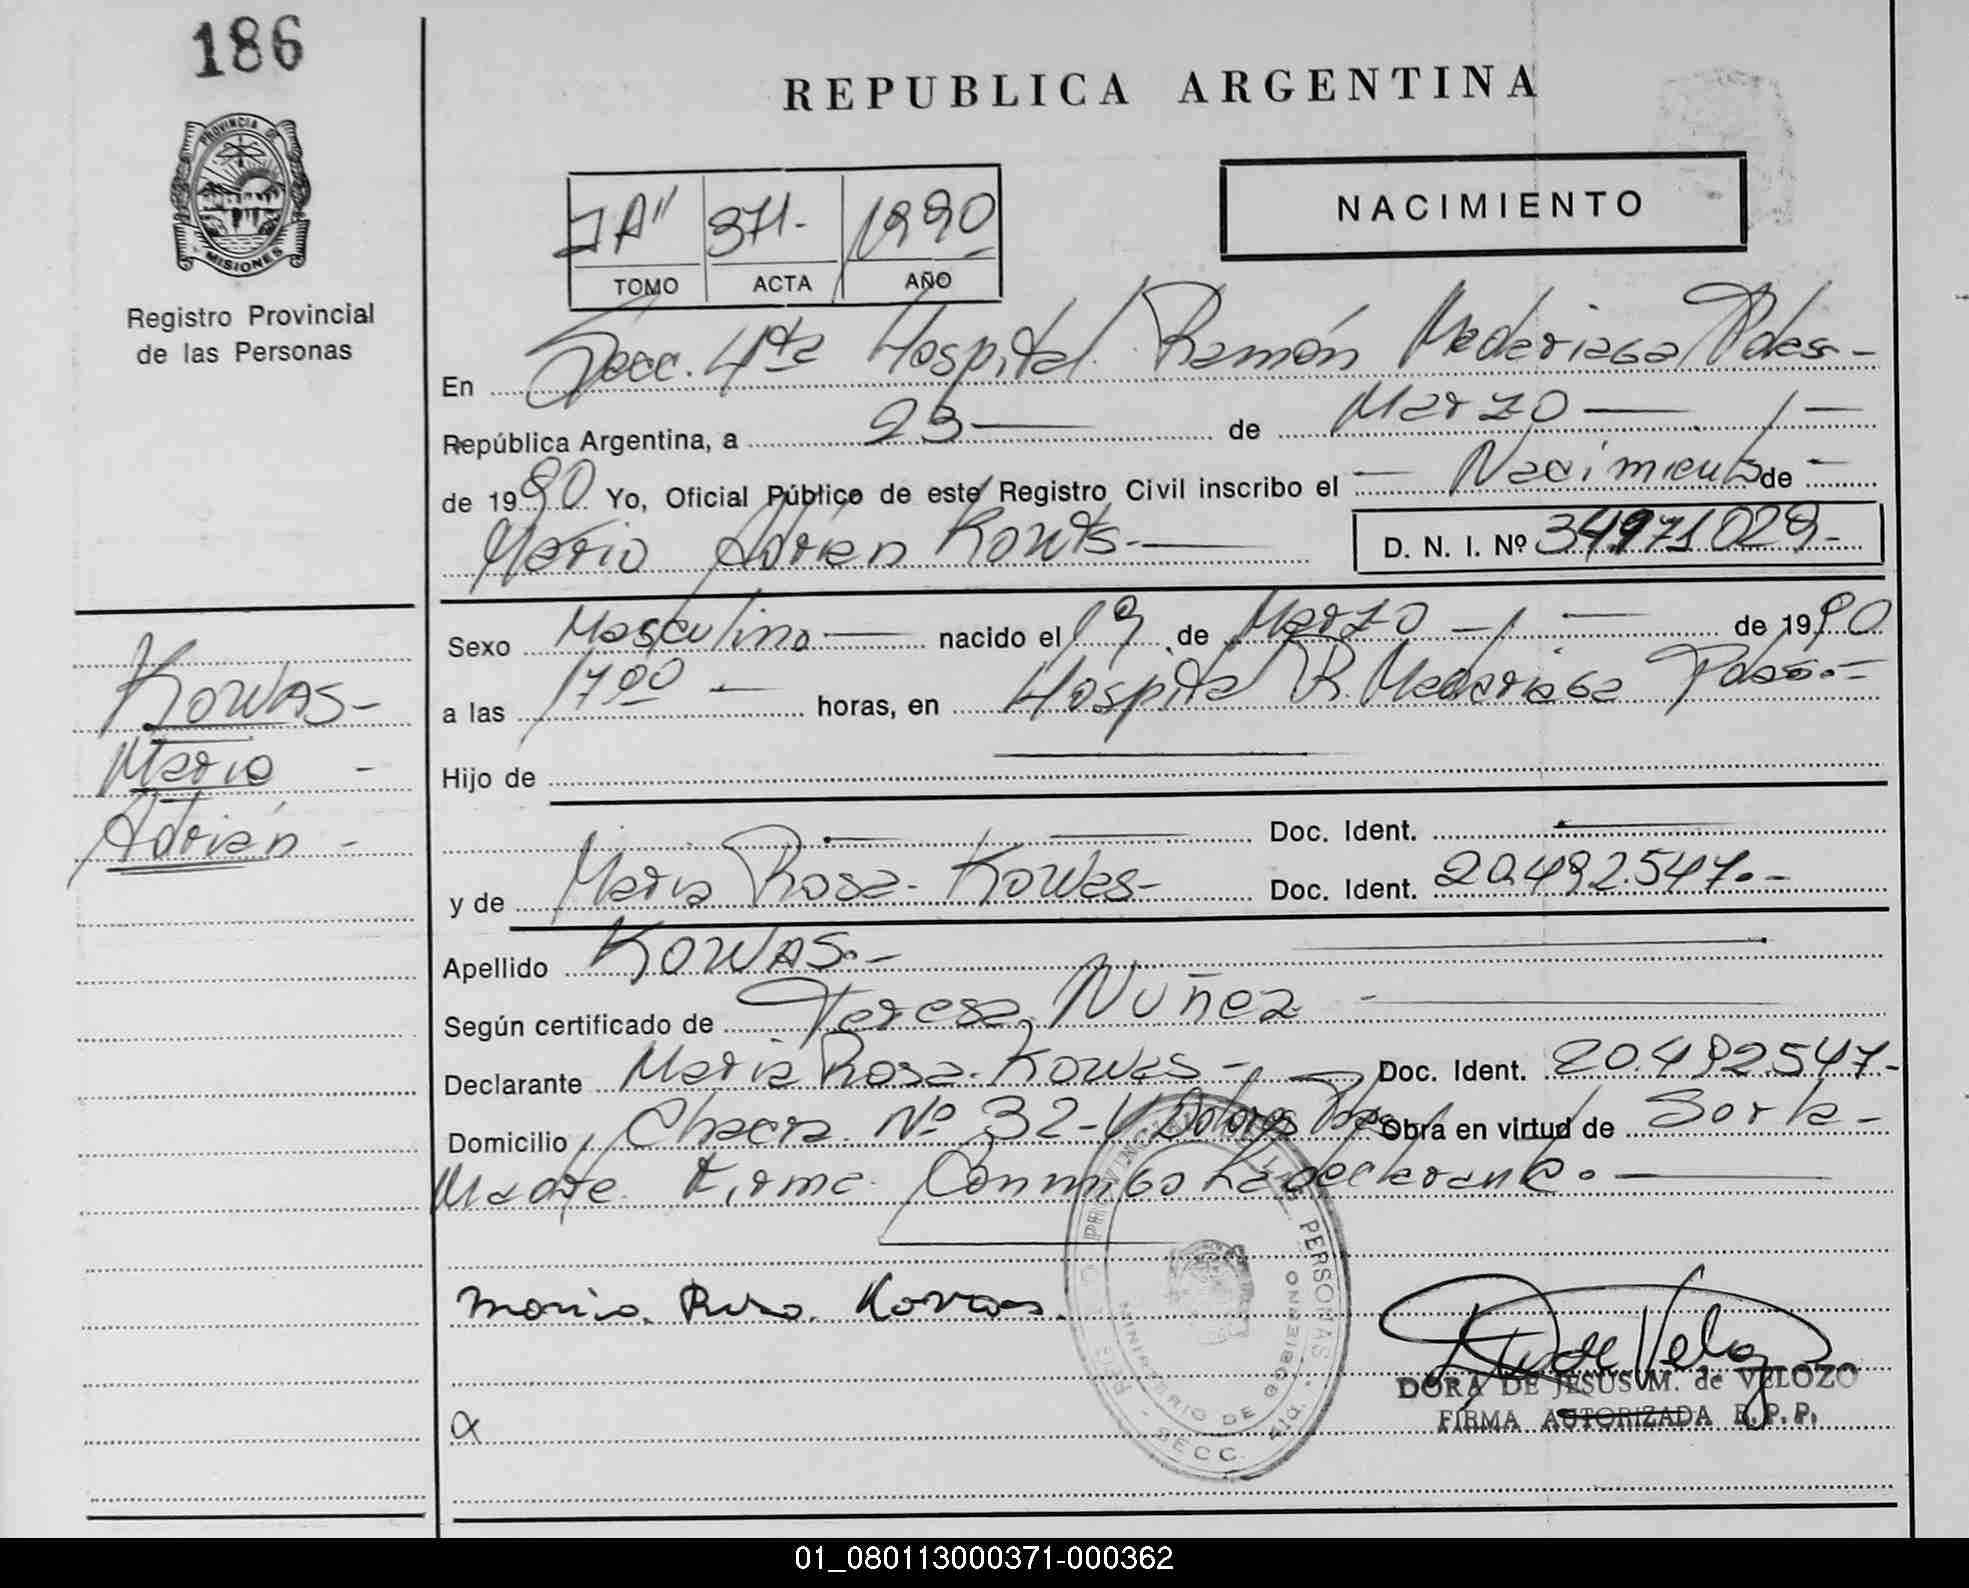 186
REPUBLICA ARGENTINA
PROVINCIA DE
MISIONES
Registro Provincial
de las Personas
NACIMIENTO
371- 1990
TOMO ACTA AÑO
En Secc. 4ta Hospital Ramón Madariaga Pdas-
República Argentina, a 23 de Marzo
de 1990 Yo, Oficial Público de este Registro Civil inscribo el Nacimiento de
Mario Adrián Kowas.- D. N. I. Nº 34.971.029-
Sexo Masculino nacido el 19 de Marzo de 1990
a las 17 00 horas, en Hospital R. Madariaga Pdas.-
Hijo de
Doc. Ident.
y de Maria Rosa- Kowas- Doc. Ident. 20.492.547.-
Apellido KOWAS.-
Según certificado de Teresa Nuñez
Declarante Maria Rosa- Kowas- Doc. Ident. 20.492547-
Domicilio Chacra Nº 32-V Dolores Pdas Obra en virtud de Ser la-
Madre. Firma Conmigo La declarante.
Kowas-
Mario -
Adrián -
Maria Rosa Kovas.
PROVINCIAL DE LAS PERSONAS
MINISTERIO DE GOBIERNO
SECC. 4ta.
DORA DE JESUS M. de VELOZO
FIRMA AUTORIZADA R.P.P.
01_080113000371-000362